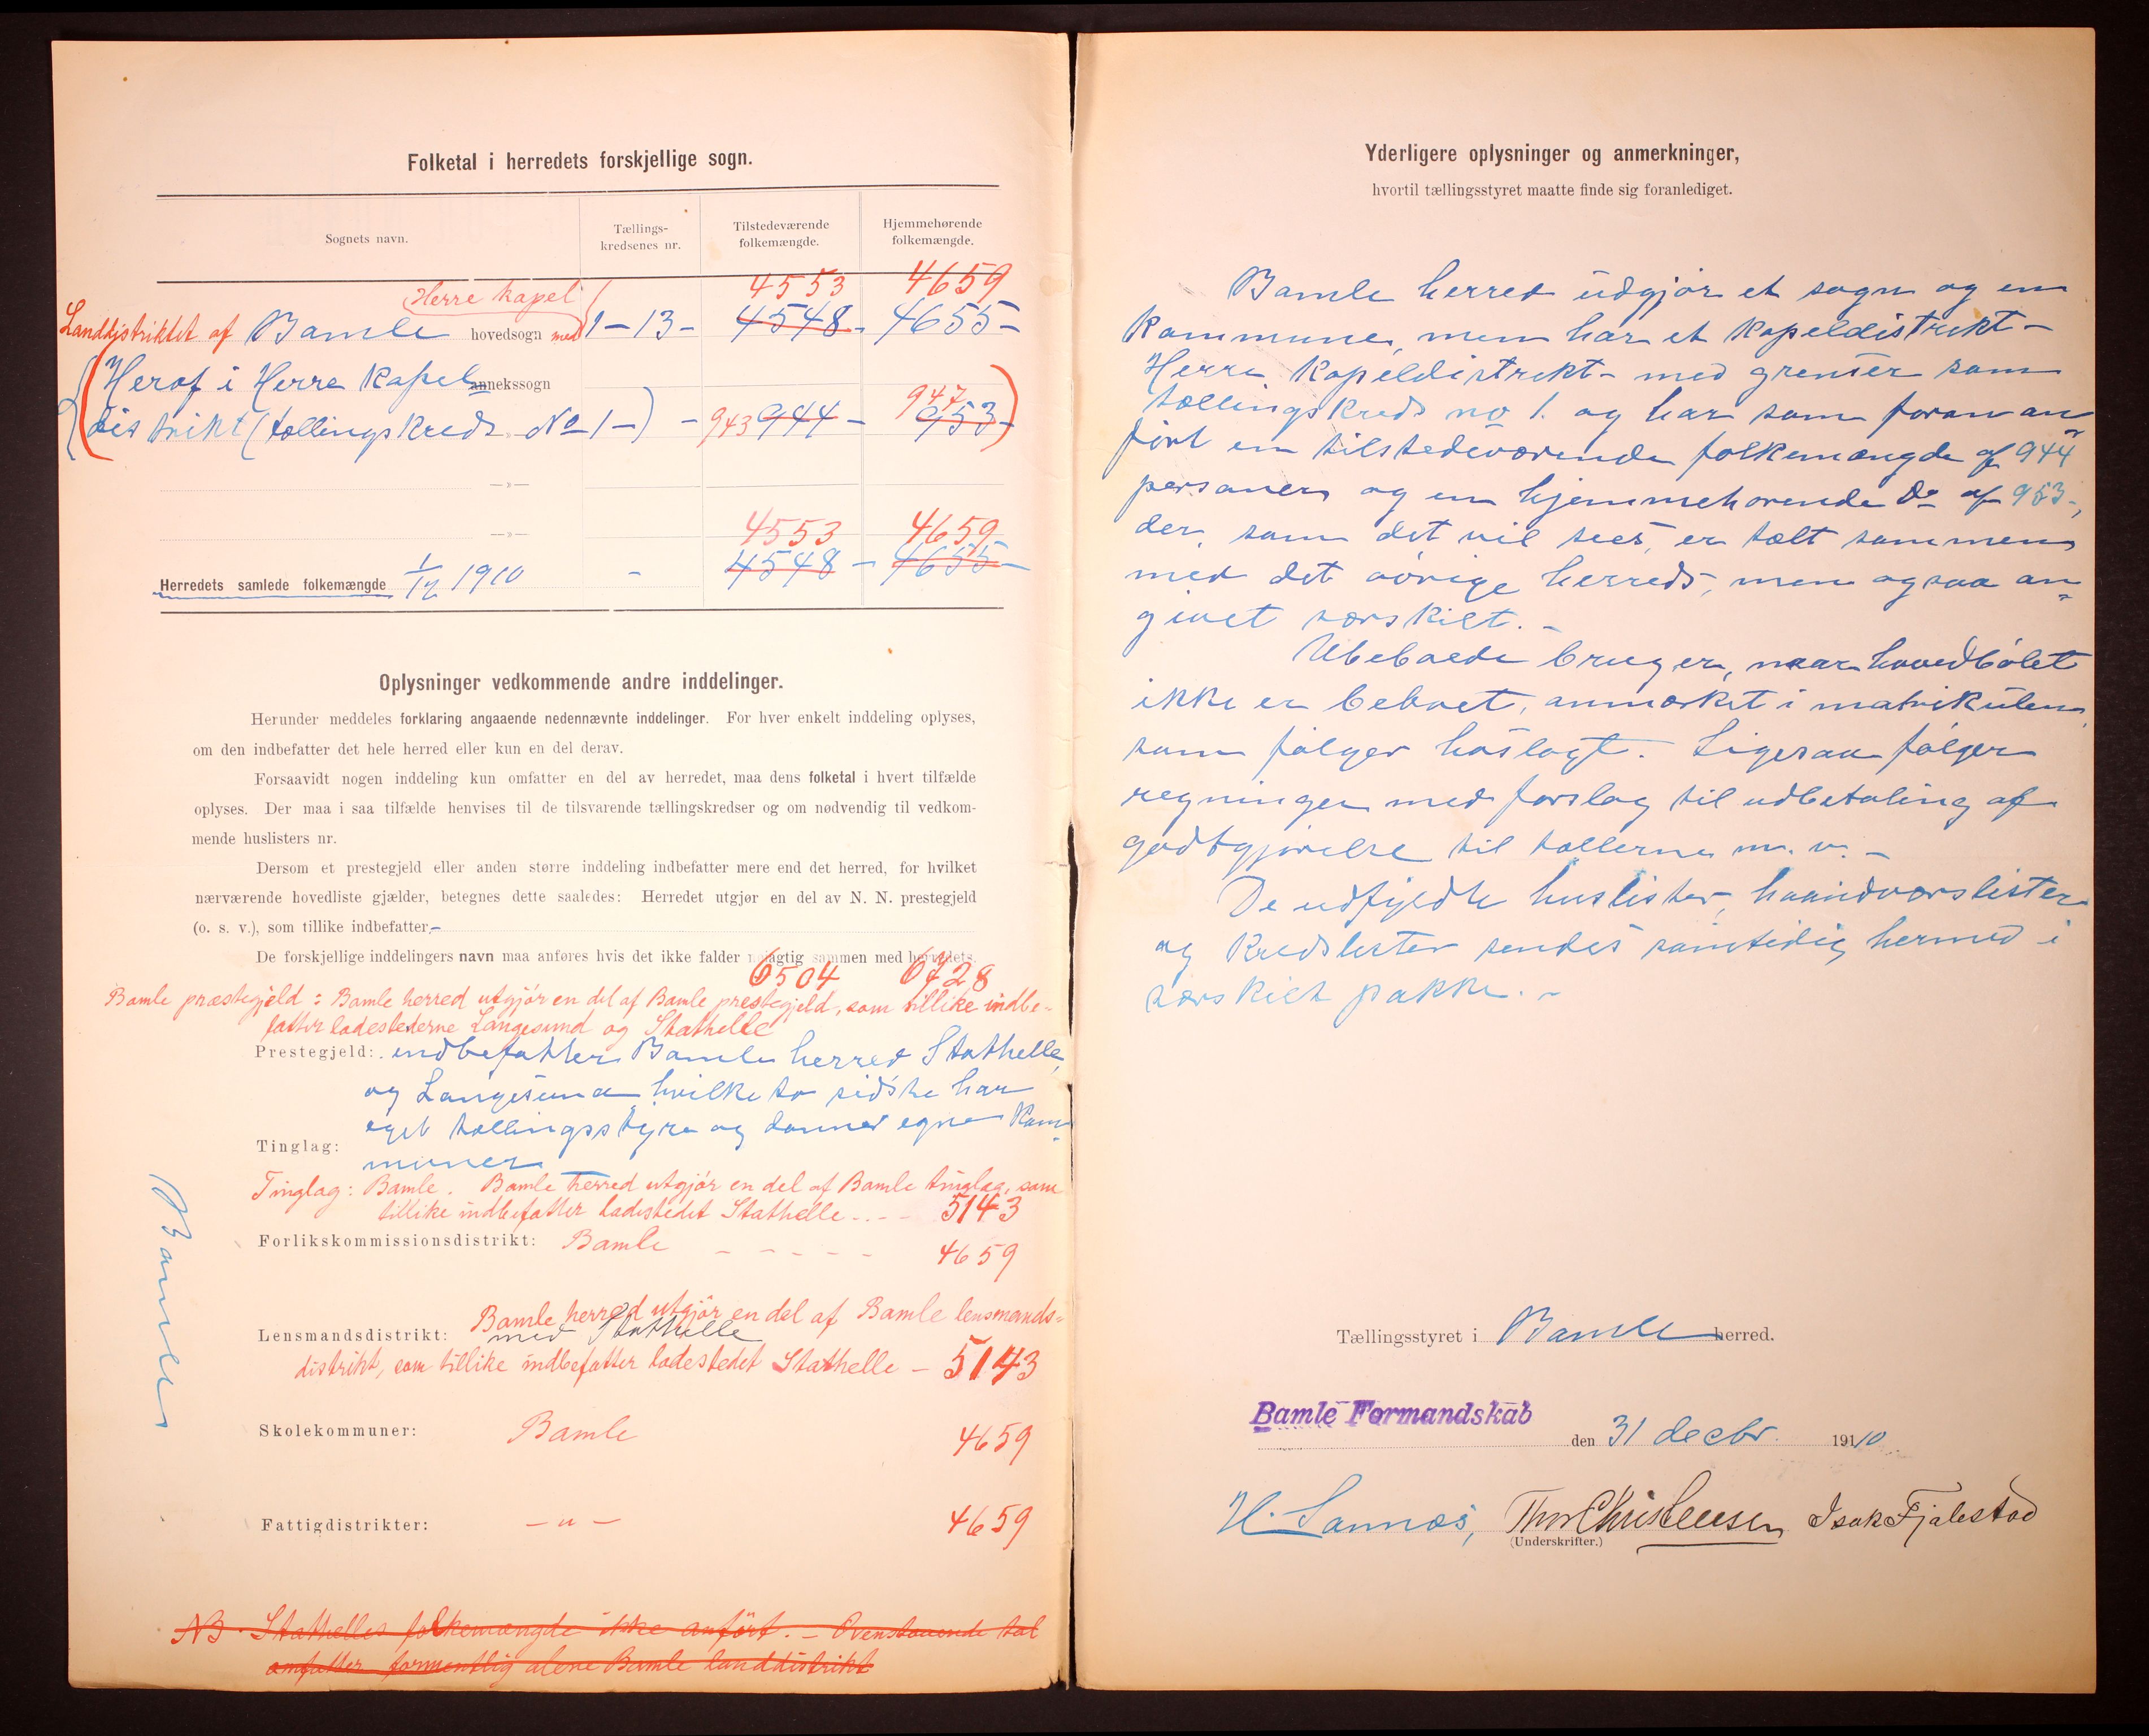 Folketal i herredets forskjellige sogn.
Sognets navn.
Tællings-
kredsenes nr.
Tilstedeværende
folkemængde.
Hjemmehørende
folkemængde.
Herre kapel
4553 4659
Landdistriktet af Bamle hovedsogn med 1-13- 4548- 4655-
Heraf i Herre Kapel annekssogn
947
distrikt (tællingskreds No 1-) - 943 944- 953-
—»—
4553 4659
—»—
Herredets samlede folkemængde 1/12 1910 - 4548 - 4655-
Oplysninger vedkommende andre inddelinger.
Herunder meddeles forklaring angaaende nedennævnte inddelinger. For hver enkelt inddeling oplyses,
om den indbefatter det hele herred eller kun en del derav.
Forsaavidt nogen inddeling kun omfatter en del av herredet, maa dens folketal i hvert tilfælde
oplyses. Der maa i saa tilfælde henvises til de tilsvarende tællingskredser og om nødvendig til vedkom-
mende huslisters nr.
Dersom et prestegjeld eller anden større inddeling indbefatter mere end det herred, for hvilket
nærværende hovedliste gjælder, betegnes dette saaledes: Herredet utgjør en del av N. N. prestegjeld
(o. s. v.), som tillike indbefatter,-
De forskjellige inddelingers navn maa anføres hvis det ikke falder nøiagtig sammen med herredets.
6504 6728
Bamle præstegjeld: Bamle herred utgjör en del af Bamle prestegjeld, som tillike indbe-
fatter ladestederne Langesund og Stathelle
Prestegjeld: indbefatter Bamle herred Stathelle
og Langesund hvilke to sidste har
eget tællingsstyre og danner egne Kom-
Tinglag:
muner
Tinglag: Bamle. Bamle herred utgjör en del af Bamle tinglag, som
tillike indbefatter ladestedet Stathelle - - - 5143
Forlikskommissionsdistrikt: Bamle - - - - - 4659
Bamle herred utgjör en del af Bamle lensmands-
Lensmandsdistrikt: med Stathelle
distrikt, som tillike indbefatter ladestedet Stathelle - 5143
Skolekommuner: Bamle 4659
Fattigdistrikter: - " - 4659
NB. Stathelles folkemængde ikke anfört. - Ovenstaaende tal
omfatter formentlig alene Bamle landdistrikt
Bamle
Yderligere oplysninger og anmerkninger,
hvortil tællingsstyret maatte finde sig foranlediget.
Bamle herred udgjør et sogn og en
Kommune, men har et Kapeldistrikt-
Herre Kapeldistrikt- med grenser som
tællingskreds no 1. og har som foran an-
ført en tilstedeværende folkemængde af 944
personer og en hjemmehørende Do af 953-,
der, som det vil sees, er talt sammen
med det øvrige herreds, men ogsaa an-
givet særskilt. -
Ubeboede bruger, naar hovedbølet
ikke er beboet, anmærket i matrikulen,
som følger hoslagt. Ligesaa følger
regninger med forslag til udbetaling af
godtgjørelse til tællerne m. v. -
De udfyldte huslister, haandværslister
og Kredslister sendes samtidig hermed i
særskilt pakke. -
Tællingsstyret i Bamle herred.
Bamle Formandskab
den 31 decbr. 1910
H. Sannes, Thor Christensen Isak Fjalestad
(Underskrifter.)